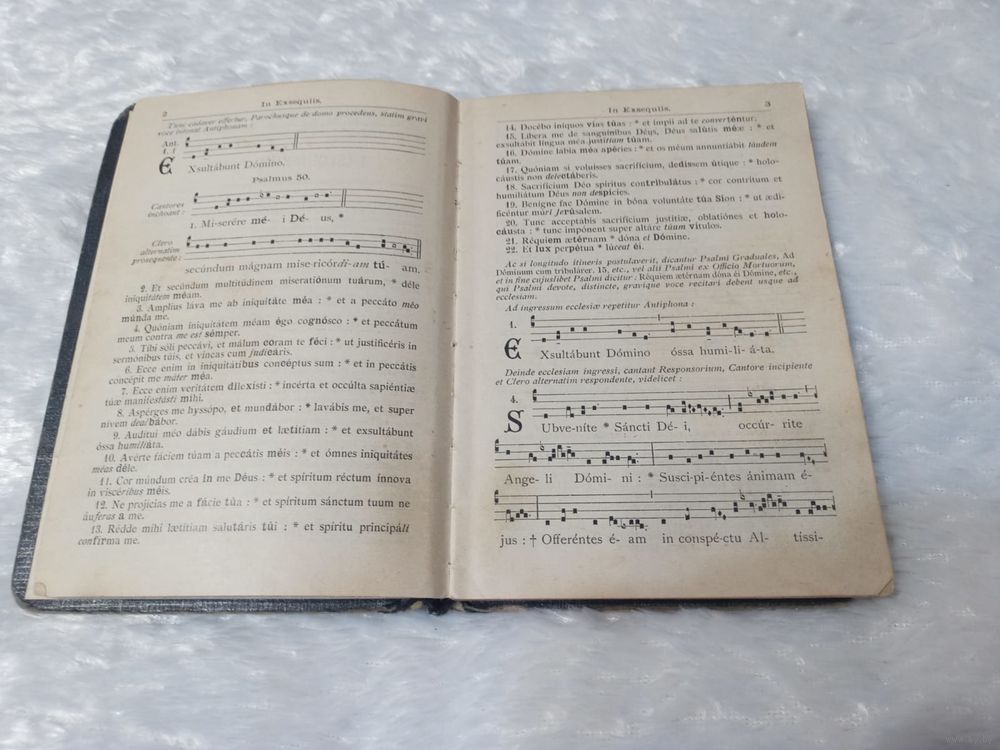 2
In Exsequiis.
Tunc cadaver effertur, Parochusque de domo procedens, statim gravi
voce intonat Antiphonam :
Ant.
1. f
E
Xsultábunt Dómino.
Psalmus 50.
Cantores
inchoant :
1. Mi-serére mé- i Dé- us, *
Clero
alternatim
prosequente :
secúndum mágnam mise-ricórdi-am tú- am.
2. Et secúndum multitúdinem miseratiónum tuárum, * déle
iniquitátem méam.
3. Amplius láva me ab iniquitáte méa : * et a peccáto méo
múnda me.
4. Quóniam iniquitátem méam égo cognósco : * et peccátum
meum contra me est sémper.
5. Tíbi sóli peccávi, et málum coram te féci : * ut justificéris in
sermónibus túis, et víncas cum judicáris.
6. Ecce enim in iniquitátibus concéptus sum : * et in peccátis
concépit me máter méa.
7. Ecce enim veritátem dilexísti : * incérta et occúlta sapiéntiæ
túæ manifestásti mihi.
8. Aspérges me hyssópo, et mundábor : * lavábis me, et super
nívem dealbábor.
9. Auditui méo dábis gáudium et lætítiam : * et exsultábunt
óssa humiliáta.
10. Avérte fáciem túam a peccátis méis : * et ómnes iniquitátes
méas déle.
11. Cor múndum créa in me Déus : * et spíritum réctum ínnova
in viscéribus méis.
12. Ne projícias me a fácie túa : * et spíritum sánctum tuum ne
áuferas a me.
13. Rédde mihi lætítiam salutáris túi : * et spíritu principáli
confírma me.
In Exsequiis.
3
14. Docébo iníquos vías túas : * et ímpii ad te converténtur.
15. Líbera me de sanguínibus Déus, Déus salútis méæ : * et
exsultábit língua méa justítiam túam.
16. Dómine lábia méa apéries : * et os méum annuntiábit láudem
túam.
17. Quóniam si voluísses sacrifícium, dedíssem útique : * holo-
cáustis non delectáberis.
18. Sacrifícium Déo spíritus contribulátus : * cor contrítum et
humiliátum Déus non despícies.
19. Benígne fac Dómine in bóna voluntáte túa Sion : * ut ædi-
ficéntur múri Jerúsalem.
20. Tunc acceptábis sacrifícium justítiæ, oblatiónes et holo-
cáusta : * tunc impónent super altáre túum vítulos.
21. Réquiem ætérnam * dóna ei Dómine.
22. Et lux perpétua * lúceat éi.
Ac si longitudo itineris postulaverit, dicantur Psalmi Graduales, Ad
Dóminum cum tribulárer. 15, etc., vel alii Psalmi ex Officio Mortuorum,
et in fine cujuslibet Psalmi dicitur : Réquiem ætérnam dóna éi Dómine, etc.,
qui Psalmi devote, distincte, gravique voce recitari debent usque ad
ecclesiam.
Ad ingressum ecclesiæ repetitur Antiphona :
1.
E
Xsultábunt Dómino óssa humi-li- á-ta.
Deinde ecclesiam ingressi, cantant Responsorium, Cantore incipiente
et Clero alternatim respondente, videlicet :
4.
S
Ubve-níte * Sáncti Dé- i, occúr- rite
Ange- li Dómi- ni : * Susci-pi-éntes ánimam é-
jus : † Offeréntes é- am in conspé-ctu Al- tíssi-